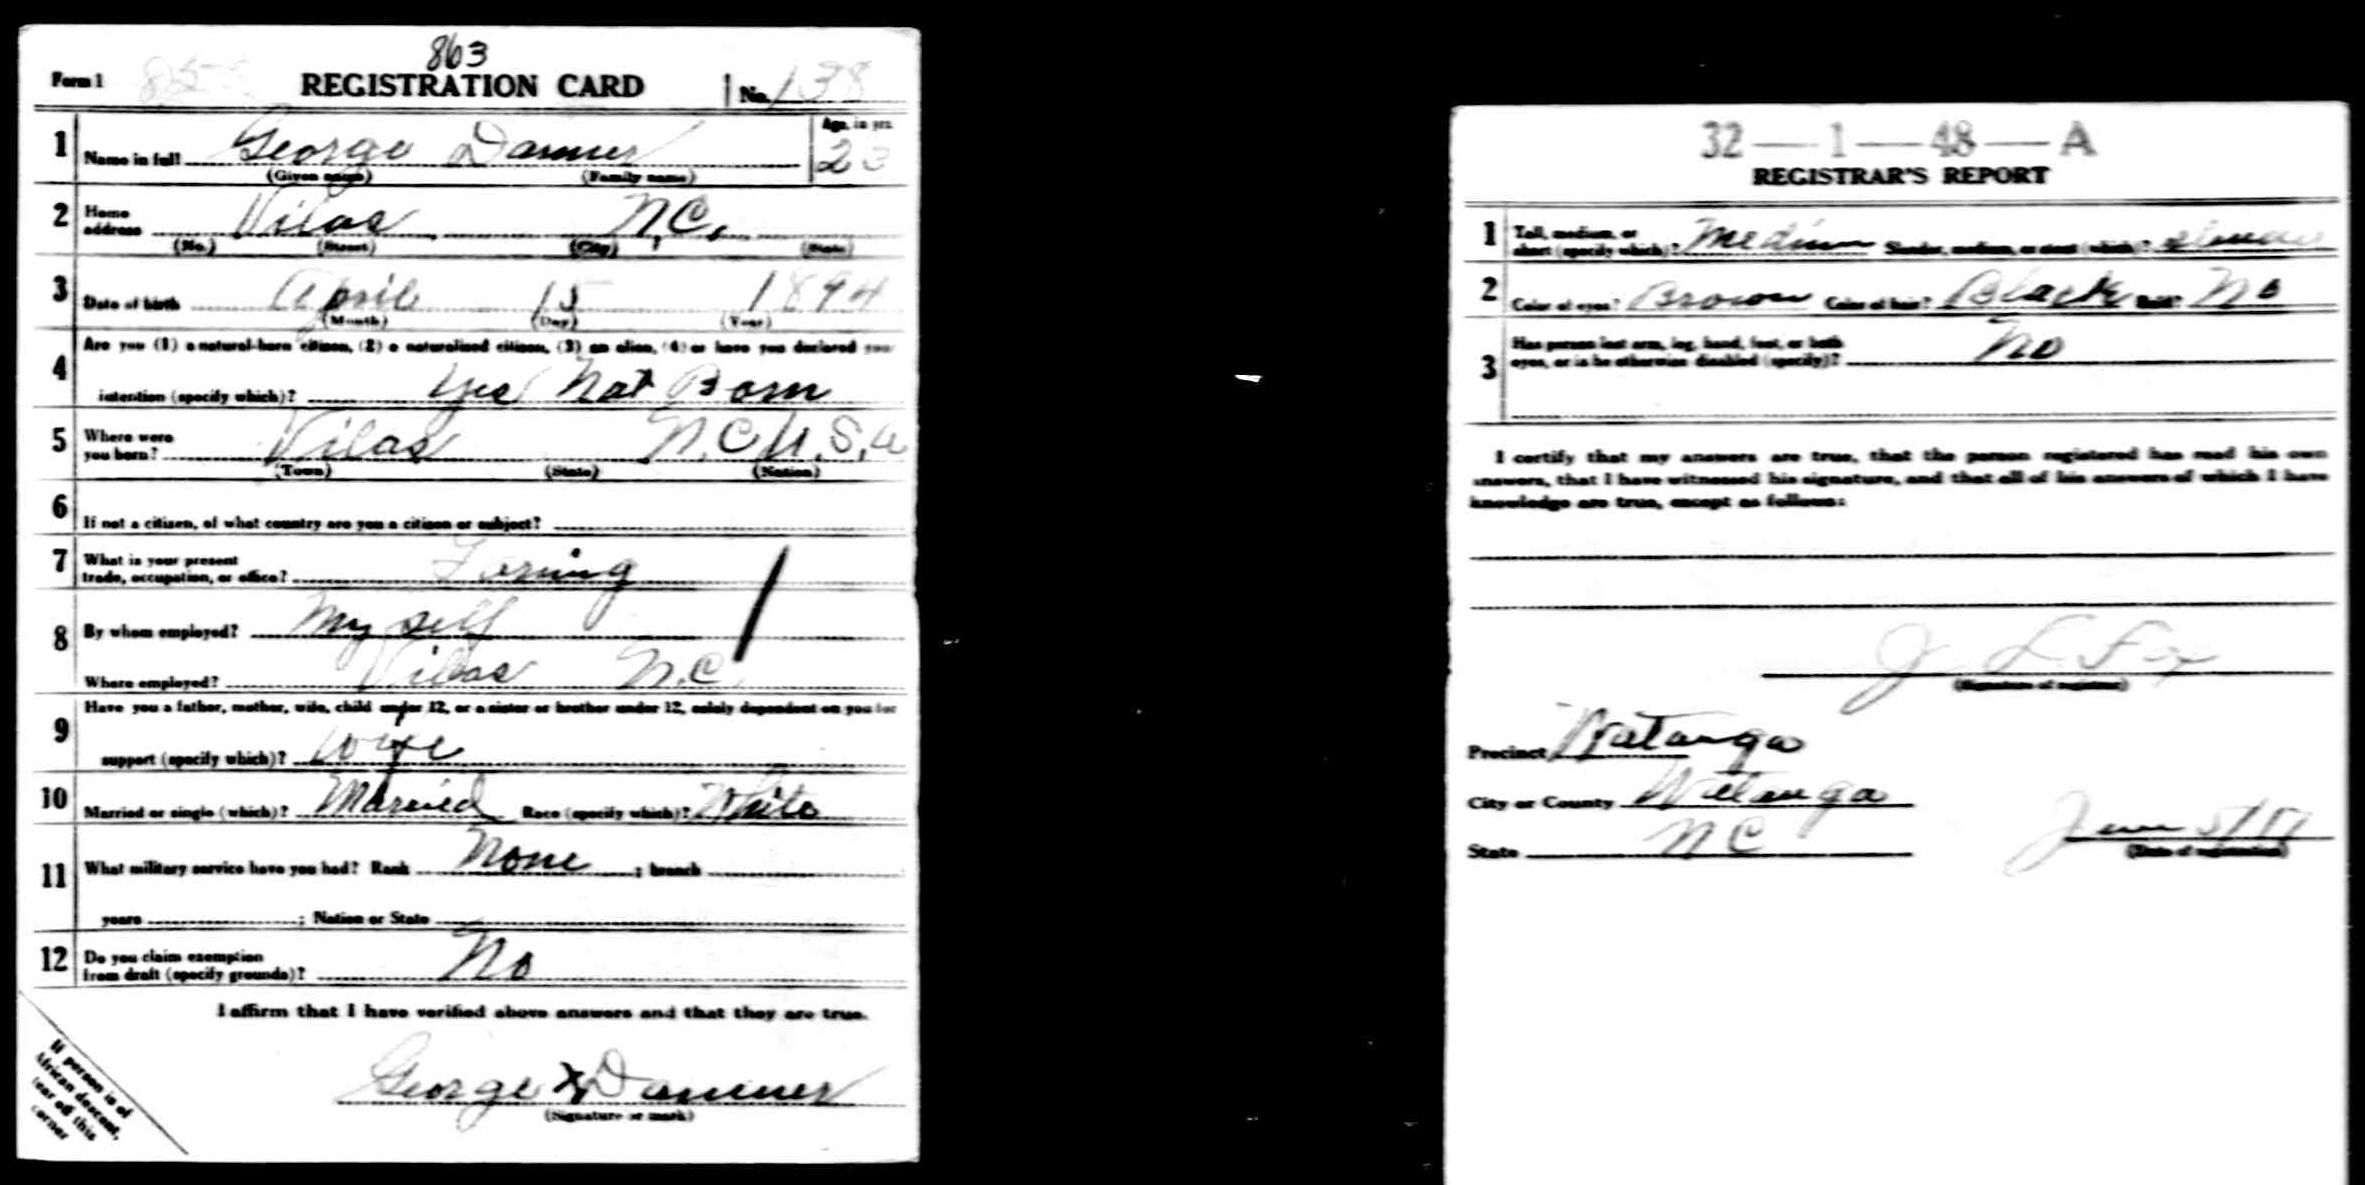 863
Form 1 REGISTRATION CARD No. 138
1 Name in full George Danner Age, in yrs. 23
(Given name) (Family name)
2 Home address Vilas N.C.
(No.) (Street) (City) (State)
3 Date of birth April 15 1894
(Month) (Day) (Year)
4 Are you (1) a natural-born citizen, (2) a naturalized citizen, (3) an alien, (4) or have you declared your
intention (specify which)? Yes Nat Born
5 Where were you born? Vilas N.C. U.S.A
(Town) (State) (Nation)
6 If not a citizen, of what country are you a citizen or subject?
7 What is your present trade, occupation, or office?
8 By whom employed? My self
Where employed? Vilas N.C.
9 Have you a father, mother, wife, child under 12, or a sister or brother under 12, solely dependent on you for
support (specify which)? Wife
10 Married or single (which)? Married Race (specify which)? White
11 What military service have you had? Rank None ; branch
years ; Nation or State
12 Do you claim exemption from draft (specify grounds)? No
I affirm that I have verified above answers and that they are true.
George X Danner
(Signature or mark)
If person is of
African descent,
tear off this
corner
32—1—48—A
REGISTRAR'S REPORT
1 Tall, medium, or short (specify which)? Medium Slender, medium, or stout (which)? Slender
2 Color of eyes? Brown Color of hair? Black Bald? No
3 Has person lost arm, leg, hand, foot, or both eyes, or is he otherwise disabled (specify)? No
I certify that my answers are true, that the person registered has read his own
answers, that I have witnessed his signature, and that all of his answers of which I have
knowledge are true, except as follows:
J L Fox
(Signature of registrar)
Precinct Watauga
City or County Watauga
State NC
June 5/17
(Date of registration)